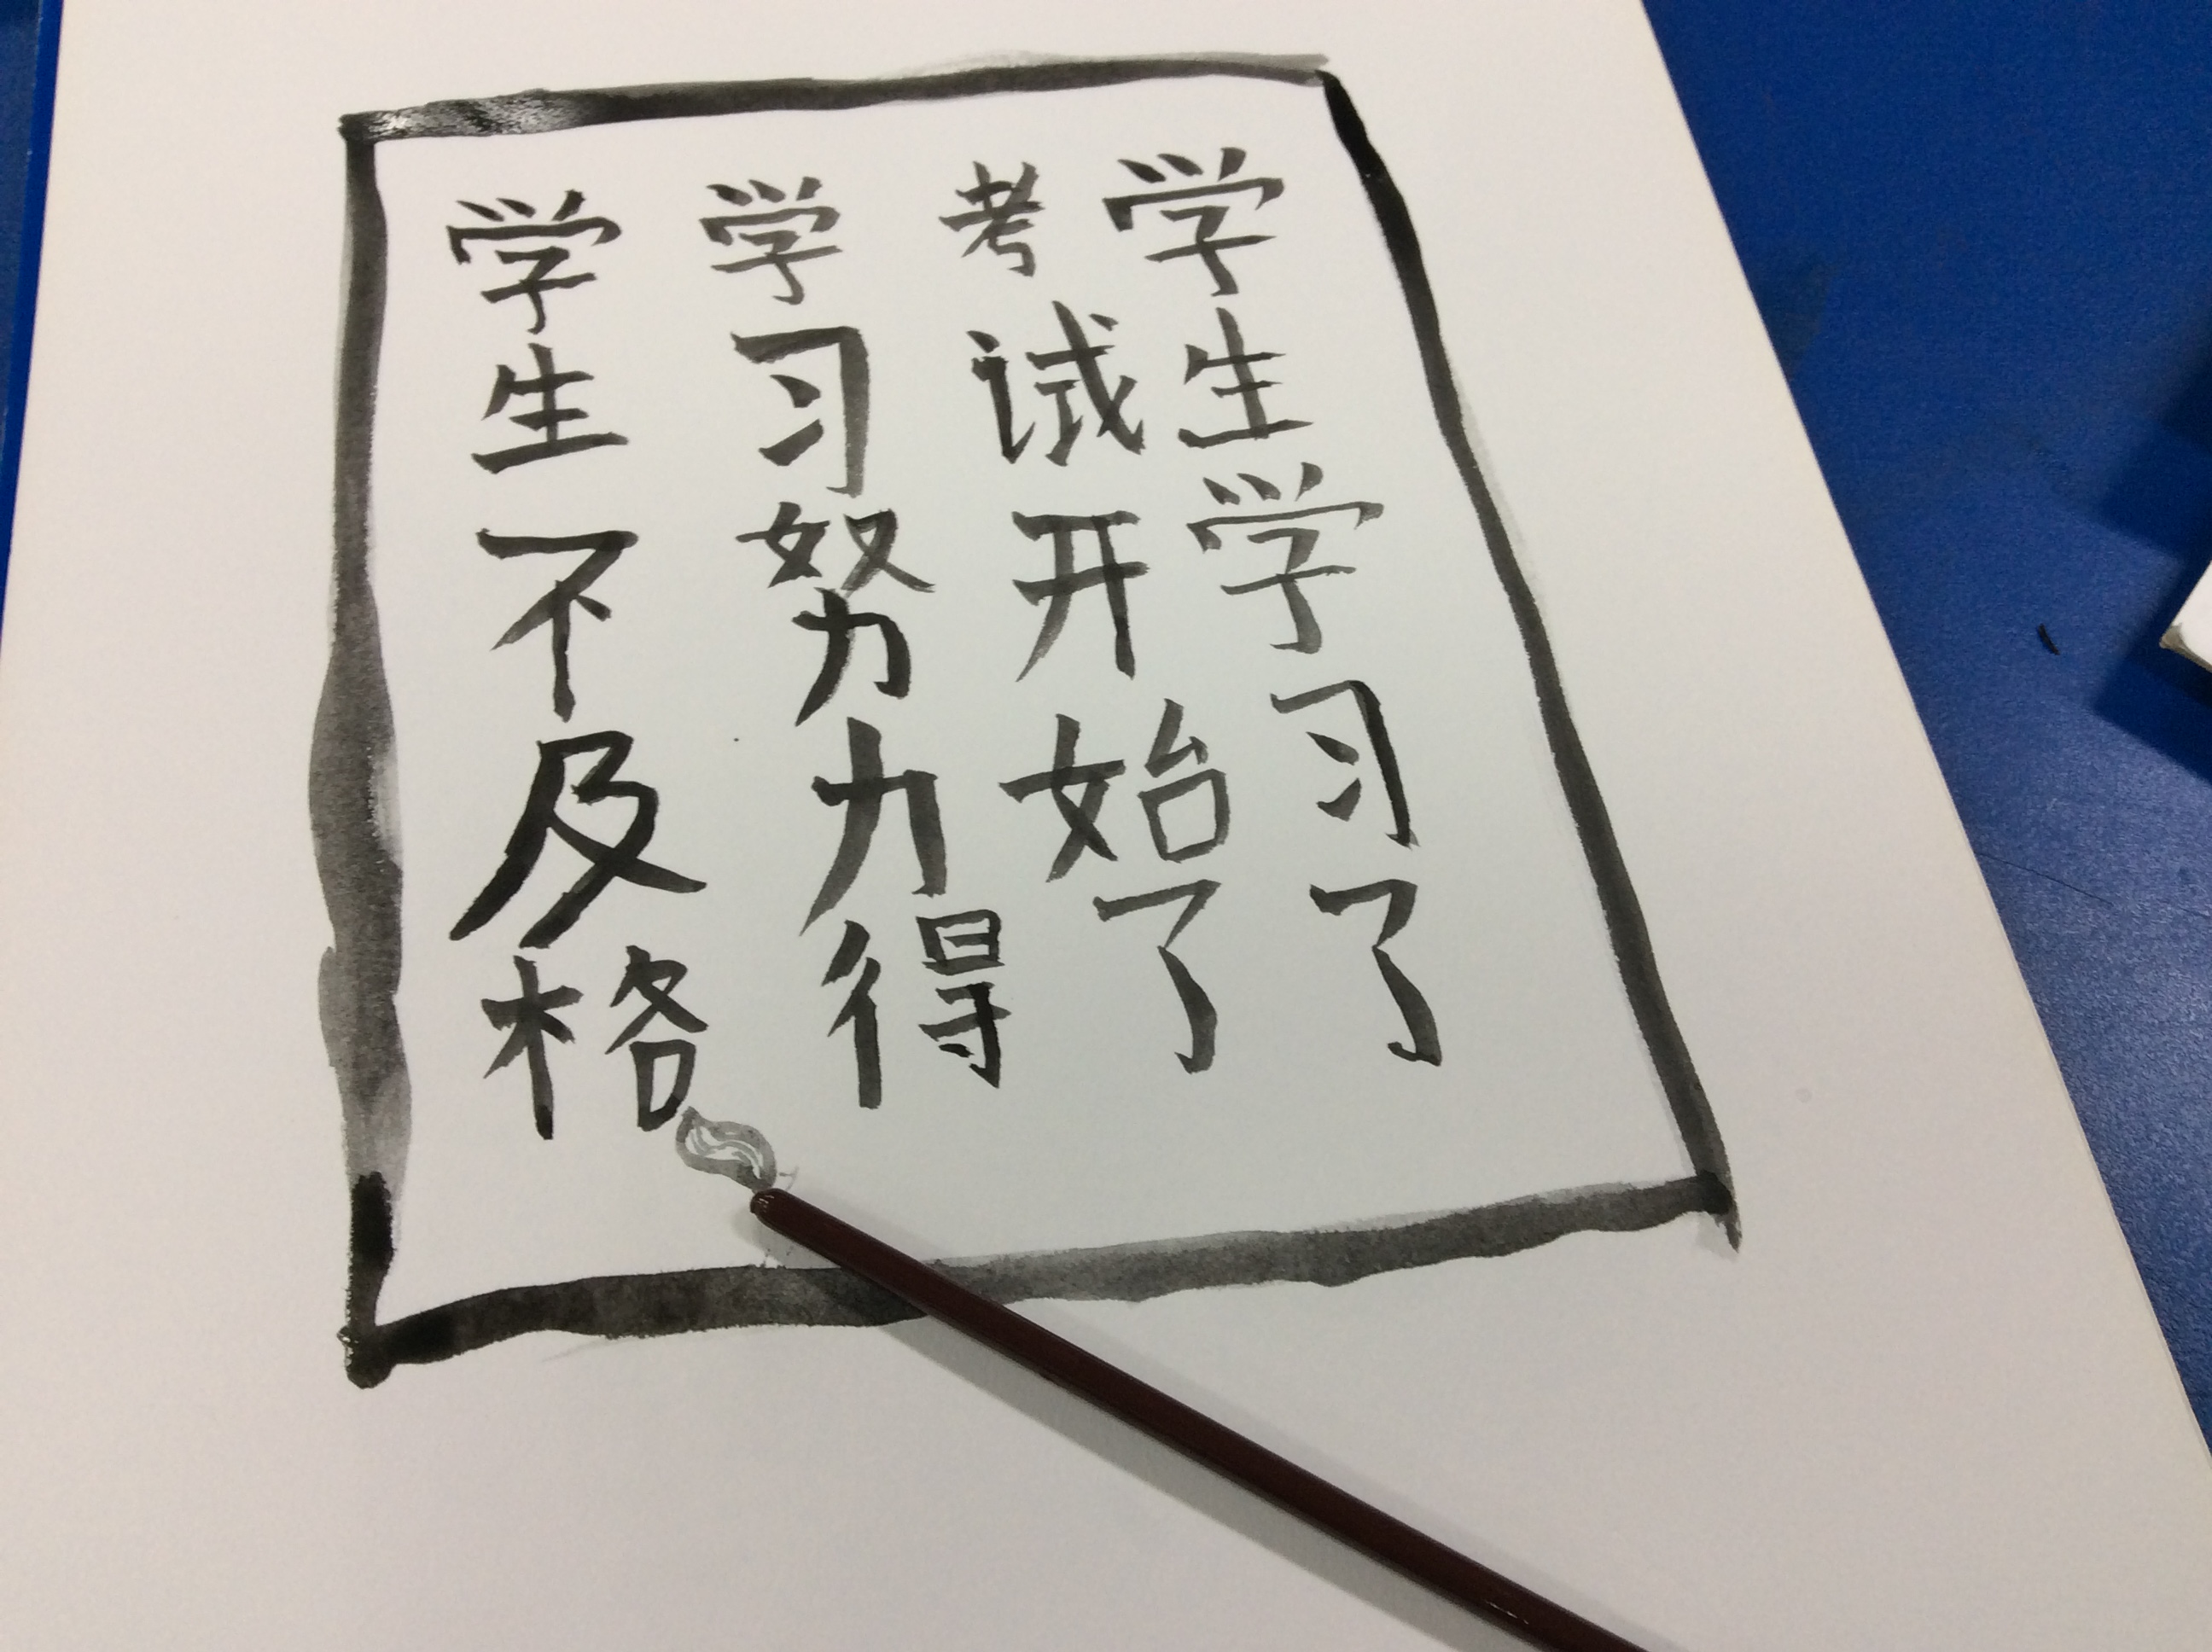 学生学习了
考试开始了
学习努力得
学生不及格